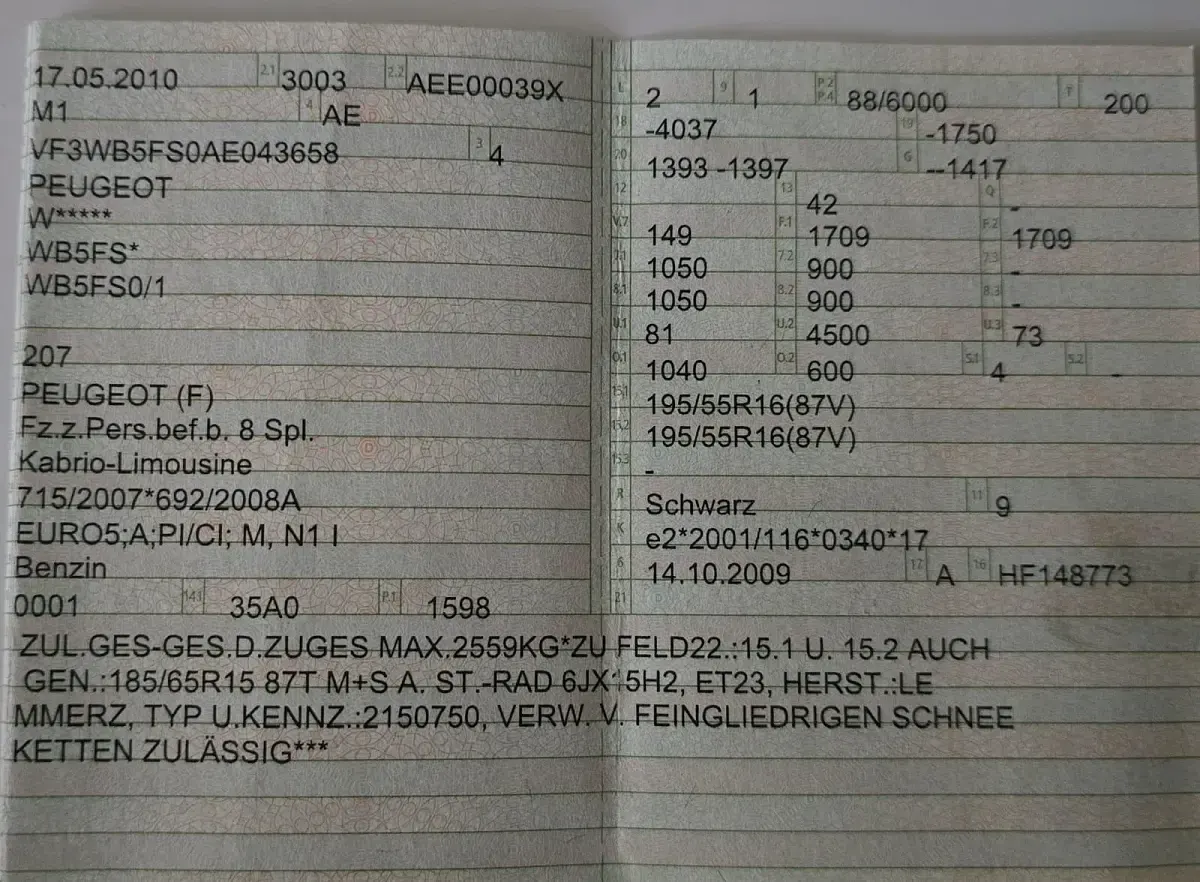 17.05.2010 2.1 3003 2.2 AEE00039X
M1 4 AE
VF3WB5FS0AE043658 3 4
PEUGEOT
W*****
WB5FS*
WB5FS0/1
207
PEUGEOT (F)
Fz.z.Pers.bef.b. 8 Spl.
Kabrio-Limousine
715/2007*692/2008A
EURO5;A;PI/CI; M, N1 I
Benzin
0001 14.1 35A0 P.1 1598
L 2 9 1 P.2 P.4 88/6000 T 200
18 -4037 19 -1750
20 1393 -1397 G --1417
12 13 42 Q -
V.7 149 F.1 1709 F.2 1709
7.1 1050 7.2 900 7.3 -
8.1 1050 8.2 900 8.3 -
U.1 81 U.2 4500 U.3 73
O.1 1040 O.2 600 S.1 4 S.2 -
15.1 195/55R16(87V)
15.2 195/55R16(87V)
15.3 -
R Schwarz 11 9
K e2*2001/116*0340*17
6 14.10.2009 17 A 16 HF148773
21
ZUL.GES-GES.D.ZUGES MAX.2559KG*ZU FELD22.:15.1 U. 15.2 AUCH
GEN.:185/65R15 87T M+S A. ST.-RAD 6JX15H2, ET23, HERST.:LE
MMERZ, TYP U.KENNZ.:2150750, VERW. V. FEINGLIEDRIGEN SCHNEE
KETTEN ZULÄSSIG***